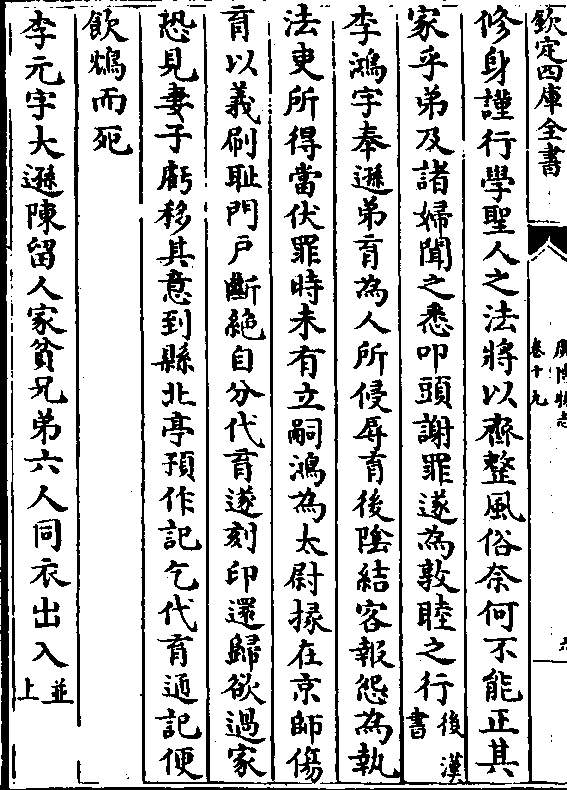 欽定四庫全書
廣博物志
卷十九
修身謹行學聖人之法將以齊整風俗奈何不能正其
家乎弟及諸婦聞之悉叩頭謝罪遂為敦睦之行後漢書
李鴻字奉遜弟育為人所侵辱育後陰結客報怨為執
法吏所得當伏罪時未有立嗣鴻為太尉掾在京師傷
育以義刷耻門戶斷絶自分代育遂刻印還歸欲過家
恐見妻子虧移其意到縣北亭預作記乞代育適記便
飲鴆而死
李元字大遜陳留人家貧兄弟六人同衣出入並上